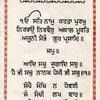 ੴ ਸਤਿ ਨਾਮੁ ਕਰਤਾ ਪੁਰਖੁ
ਨਿਰਭਉ ਨਿਰਵੈਰੁ ਅਕਾਲ ਮੂਰਤਿ
ਅਜੂਨੀ ਸੈਭੰ ਗੁਰ ਪ੍ਰਸਾਦਿ ॥
॥ ਜਪੁ ॥
ਆਦਿ ਸਚੁ ਜੁਗਾਦਿ ਸਚੁ ॥
ਹੈ ਭੀ ਸਚੁ ਨਾਨਕ ਹੋਸੀ ਭੀ ਸਚੁ ॥੧॥
ਸੋਚੈ ਸੋਚਿ ਨ ਹੋਵਈ
ਜੇ ਸੋਚੀ ਲਖ ਵਾਰ ॥